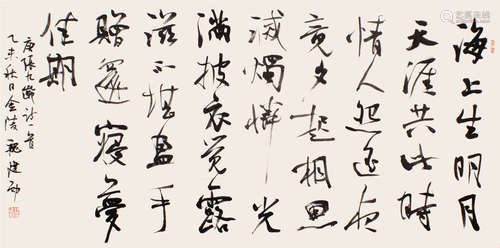 海上生明月
天涯共此時
情人怨遥夜
竟夕起相思
滅燭憐光
滿披衣覺露
滋不堪盈手
贈還寢夢
佳期
唐張九齡詩一首
乙未秋日金陵